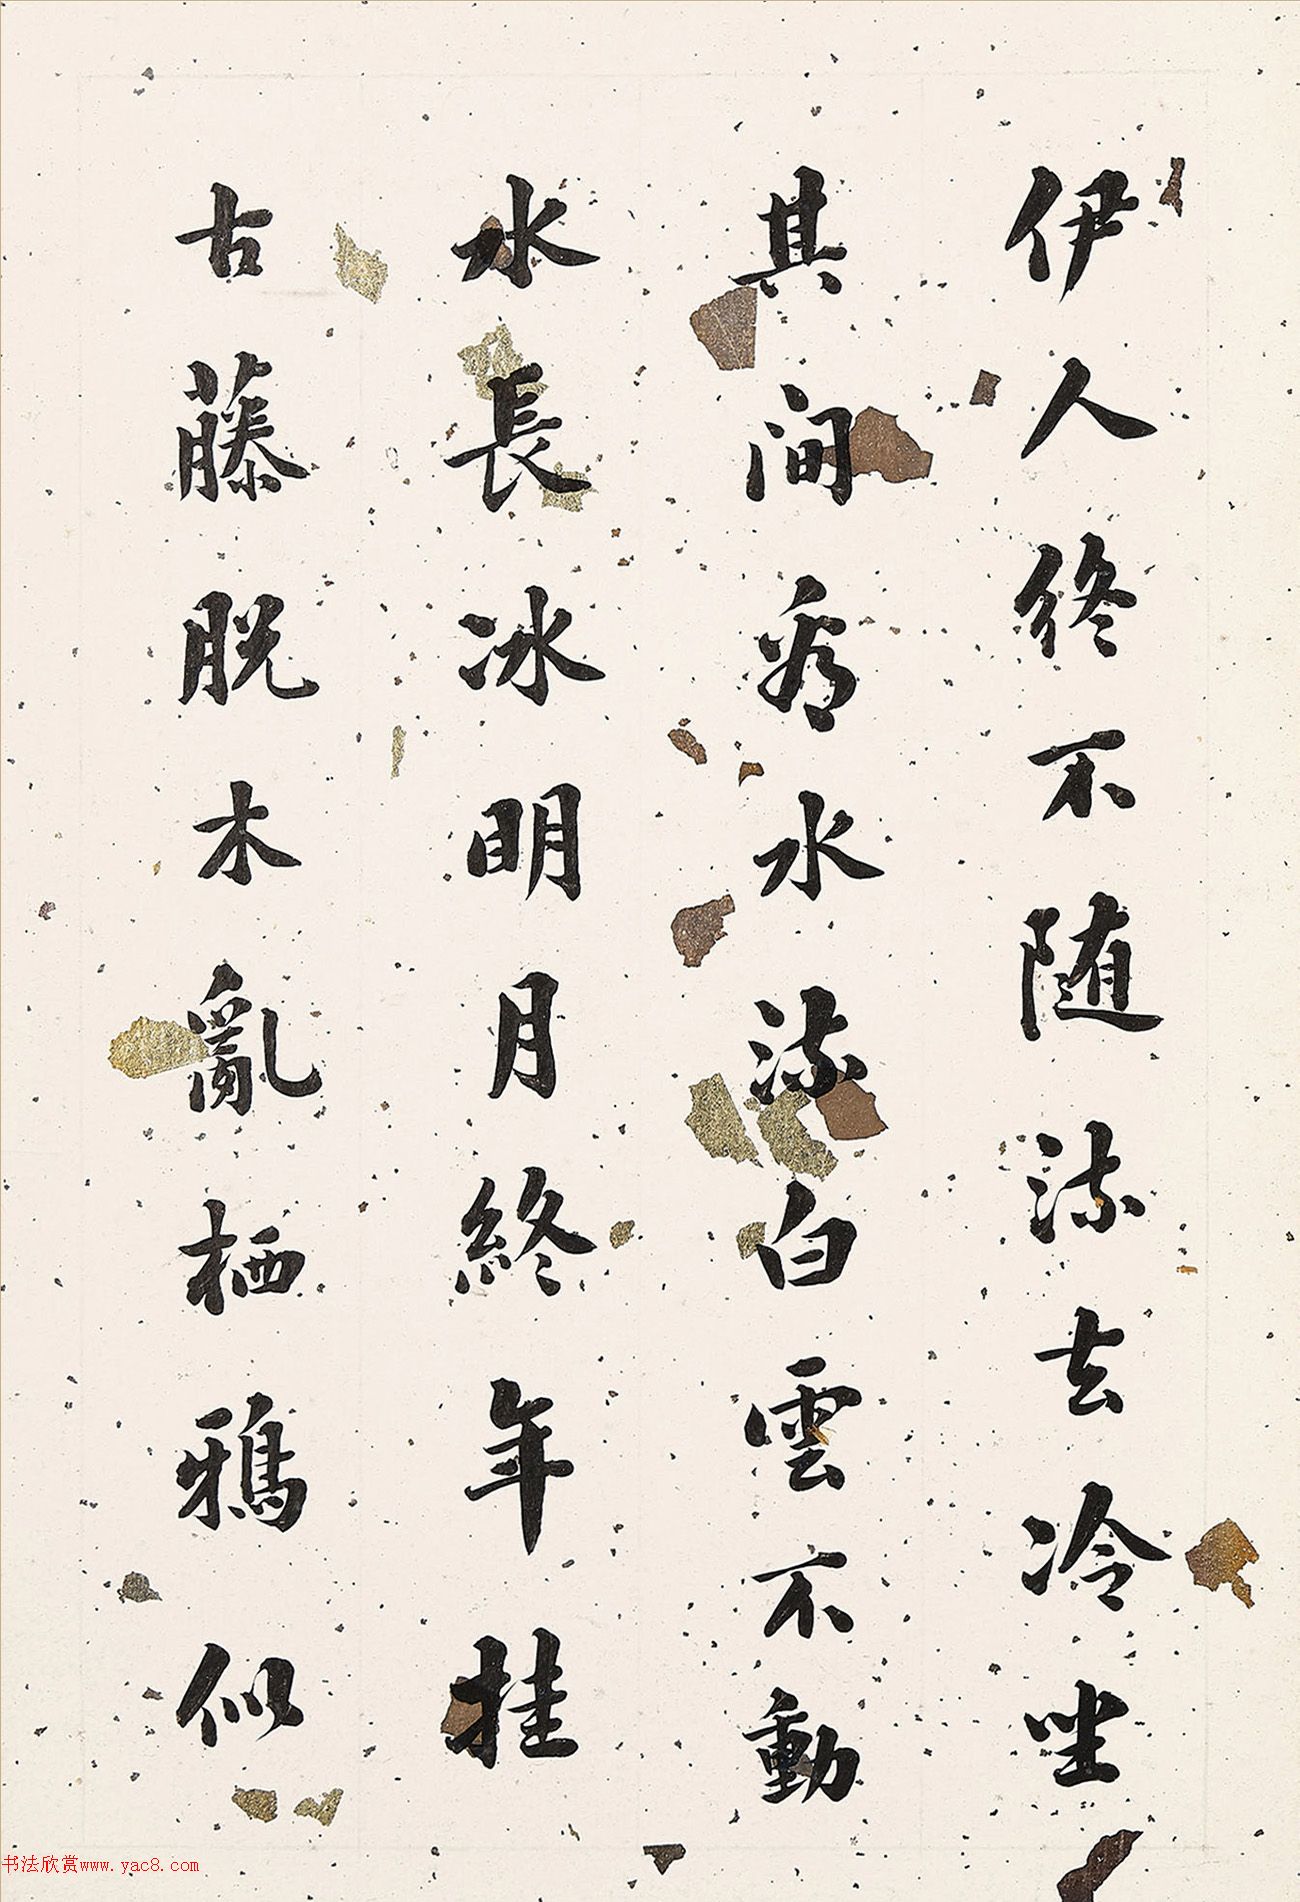 伊人终不随流去冷坐
其间看水流白雲不動
水長冰明月終年挂
古藤脱木亂栖鴉似
书法欣赏www.yac8.com